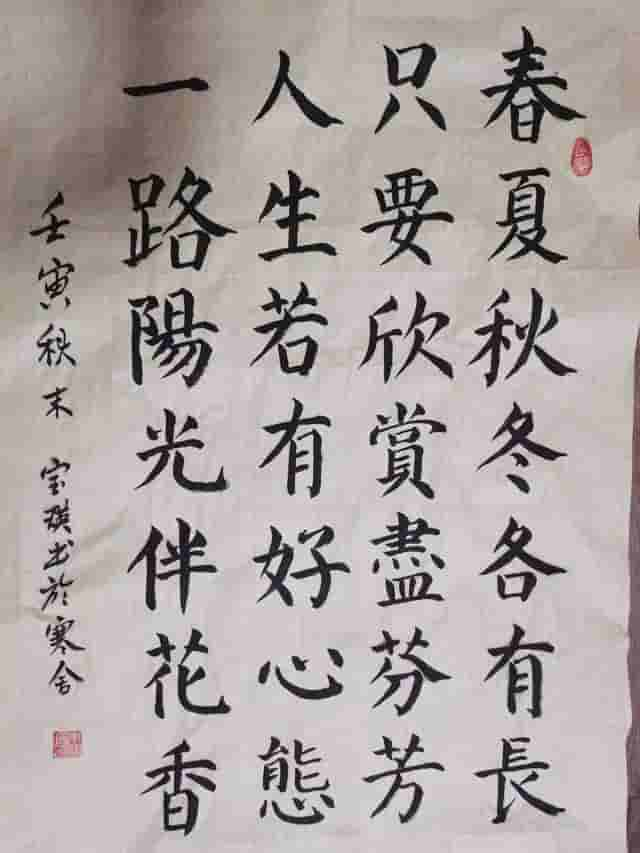 春夏秋冬各有長
只要欣賞盡芬芳
人生若有好心態
一路陽光伴花香
壬寅秋末 宝琪书於寒舍